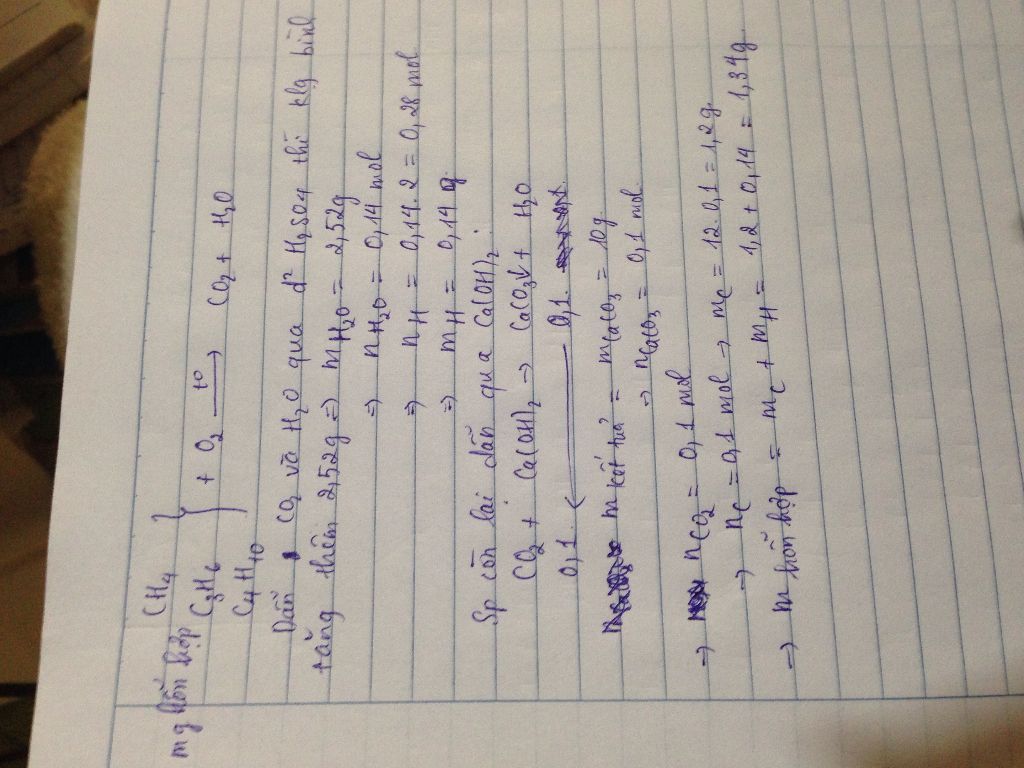 CH4
mg hỗn hợp C3H6 } + O2 →(t°) CO2 + H2O
C4H10
Dẫn CO2 và H2O qua d² H2SO4 thì klg bình
tăng thêm 2,52g => mH2O = 2,52g
=> nH2O = 0,14 mol
=> nH = 0,14.2 = 0,28 mol
=> mH = 0,14 g
Sp còn lại dẫn qua Ca(OH)2.
CO2 + Ca(OH)2 → CaCO3↓ + H2O
0,1. ← 0,1.
m kết tủa = mCaCO3 = 10g
→ nCaCO3 = 0,1 mol.
→ nCO2 = 0,1 mol
→ nC = 0,1 mol → mC = 12.0,1 = 1,2g.
→ m hỗn hợp = mC + mH = 1,2 + 0,14 = 1,34g.